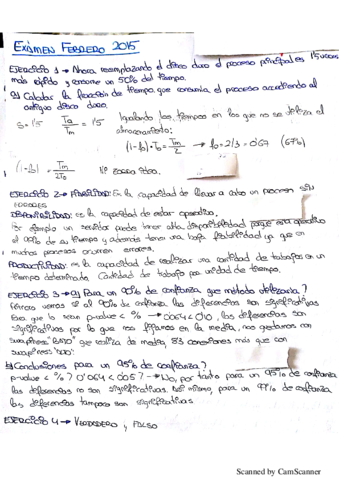 EXÁMEN FEBRERO 2015
EJERCICIO 1 → Ahora reemplazando el disco duro el proceso principal es 1'5 veces
más rápido y consume un 50% del tiempo.
a) Calcular la fracción de tiempo que consumía el proceso accediendo al
antiguo disco duro.
S = 1'5 Ta/Tm = 1'5 Igualando los tiempos en los que no se utiliza el
almacenamiento:
(1-fb)·To = Tm/2 → fb = 2/3 = 0'67 (67%)
(1-fb) = Tm/2To
EJERCICIO 2 → FIABILIDAD: Es la capacidad de llevar a cabo un proceso SIN
ERRORES
DISPONIBILIDAD: es la capacidad de estar operativo,
Por ejemplo un servidor puede tener alta disponibilidad porque está operativo
el 99% de su tiempo y además tener una baja fiabilidad ya que en
muchos procesos ocurren errores.
PRODUCTIVIDAD: es la capacidad de realizar una cantidad de trabajos en un
tiempo determinado. Cantidad de trabajo por unidad de tiempo.
EJERCICIO 3 → a) Para un 90% de confianza que método utilizaría?
Primero vemos si al 90% de confianza las diferencias son significativas
Para que lo sean p-value < % → 0'064 < 0'10, las diferencias son
significativas por lo que nos fijamos en la media, nos quedamos con
que realiza de media 83 conexiones más que con
b) Conclusiones para un 95% de confianza?
p-value < % ? 0'064 < 0'05 ? → No, por tanto para un 95% de confianza
las diferencias no son significativas. Del mismo, para un 99% de confianza
las diferencias tampoco son significativas
EJERCICIO 4 → VERDADERO y FALSO
Scanned by CamScanner